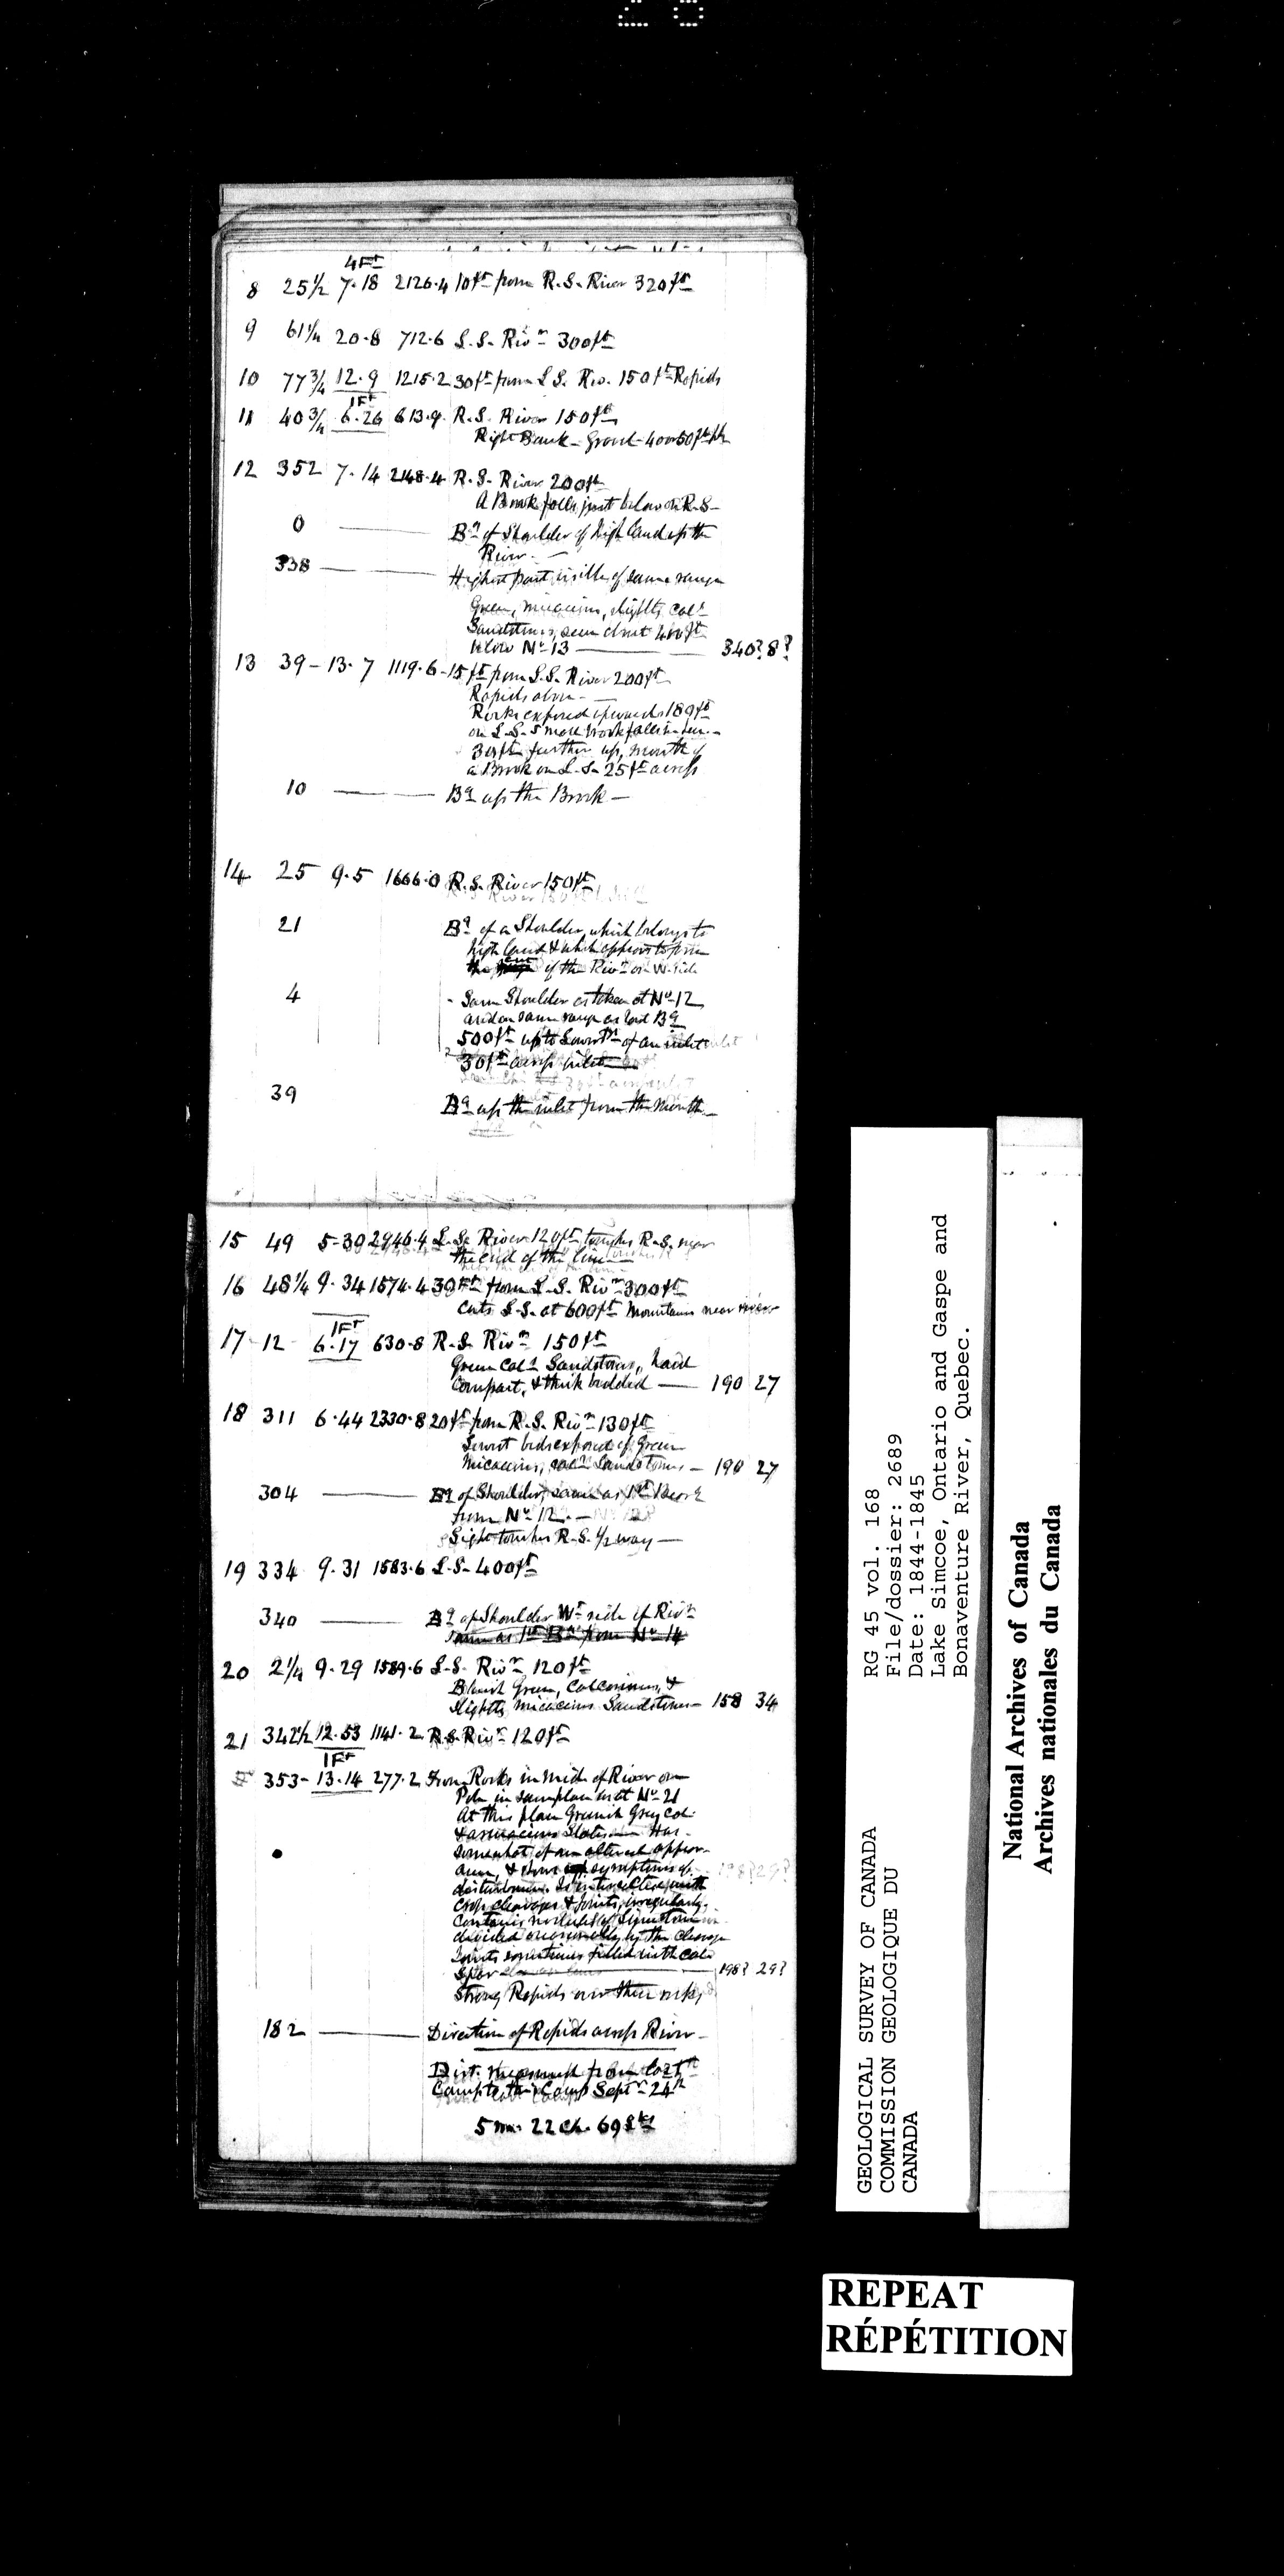 4Ft
8 25½ 7·18 2126·4 10ft from R.S. River 320ft
9 61¼ 20·8 712·6 L.S. Rivr 300ft
10 77¾ 12·9 1215·2 30ft from L.S. Riv. 150ft Rapids
1Ft
11 40¾ 6·26 613·9 R.S. River 150ft
Right Bank - Gravel - 40 or 50ft
12 352 7·14 2148·4 R.S. River 200ft
A Brook falls just below on R.S-
0 Bg of Shoulder of high land up the
River -
338 Highest part visible of same range
Green, micaceous, slightly calc
Sandstones, seen about 400ft
below No 13 340? 8?
13 39 - 13·7 1119·6 - 15ft from L.S. River 200ft
Rapids above -
Rocks exposed upwards 180ft
on L.S. Small brook falls in here -
30ft further up, mouth of
a Brook on L.S. 25ft across
10 Bg up the Brook -
14 25 9·5 1666·0 R.S. River 150ft
21 Bg of a Shoulder, which belongs to
high land & which appears to
the of the Rivr on W. side
4 - Same Shoulder as taken at No 12
and on same range as last Bg
500ft up to of an inlet
30ft across inlet
39 Bg up the inlet from the mouth -
15 49 5-30 2946·4 L.S. River 120ft touches R.S. near
the end of the line
16 48¼ 9·34 1574·4 30Ft from L.S. Rivr 300ft
Cuts L.S. at 600ft Mountains near river
1Ft
17 12 6·17 630·8 R.S. Rivr 150ft
Green Calc Sandstones, hard
Compact, & thick bedded - 190 27
18 311 6·44 2330·8 20ft from R.S. Rivr 130ft
Lowest beds exposed of Green
Micaceous, calc Sandstones - 190 27
304 Bg of Shoulder, same as 1st
from No 12 -
Sight touches R.S. ½ way -
19 334 9·31 1583·6 L.S- 400ft
340 Bg of Shoulder Wt side of Rivr
same as 1st Bg from No 14
20 2¼ 9·29 1589·6 L.S. Rivr 120ft
Bluish Green, Calcareous, &
slightly micaceous Sandstones - 158 34
21 342½ 12·53 1141·2 R.S. Rivr 120ft
1Ft
353 - 13·14 277·2 From Rocks in Mid of River on
in same place with No 21
At this place Greenish Grey Calc
Has
somewhat of an altered appear-
ance, & shows symptoms of
disturbance. Is intersected with
cross cleavages & joints, irregularly.
Contains nodules of Limestone
divided occasionally by the cleavage
Joints sometimes filled with calc
Spar 198? 29?
Strong Rapids over these rocks
182 Direction of Rapids across River -
Dist. measured from last
Camp to this Camp Septr 24th
5 m. 22 ch. 69 lks
RG 45 vol. 168
File/dossier: 2689
Date: 1844-1845
Lake Simcoe, Ontario and Gaspe and
Bonaventure River, Quebec.
GEOLOGICAL SURVEY OF CANADA
COMMISSION GEOLOGIQUE DU
CANADA
National Archives of Canada
Archives nationales du Canada
REPEAT
RÉPÉTITION